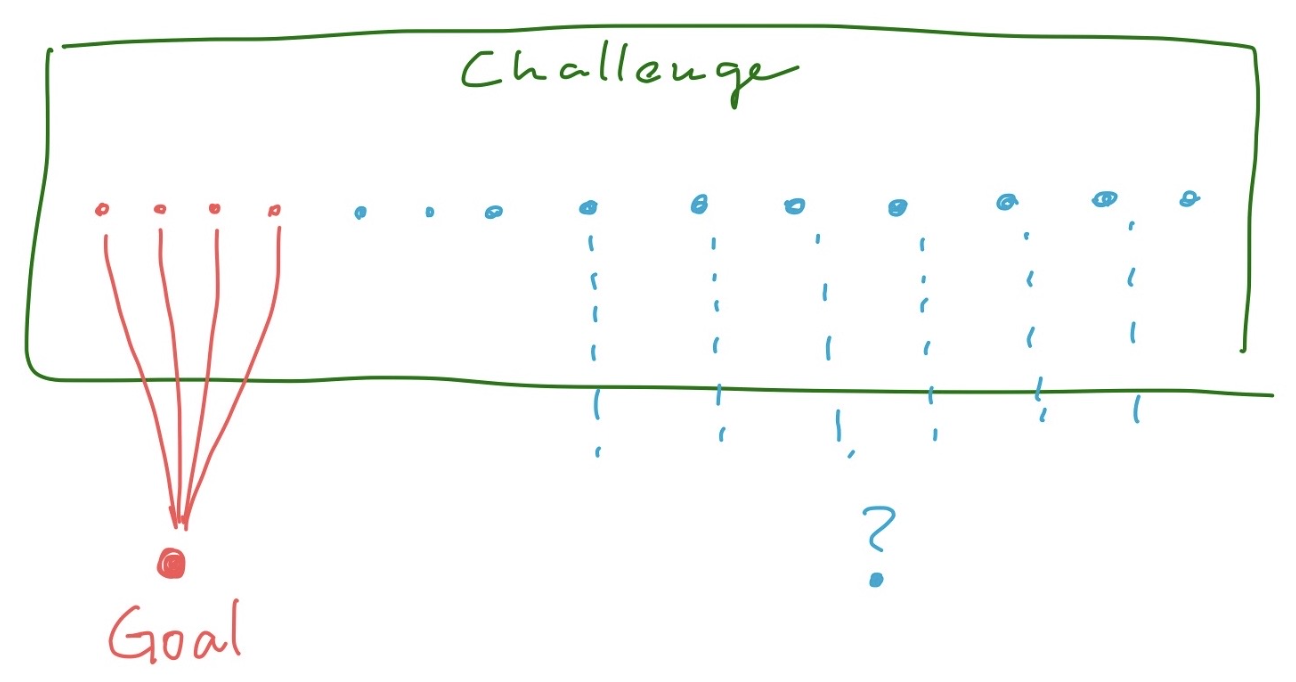 Challenge
?
Goal